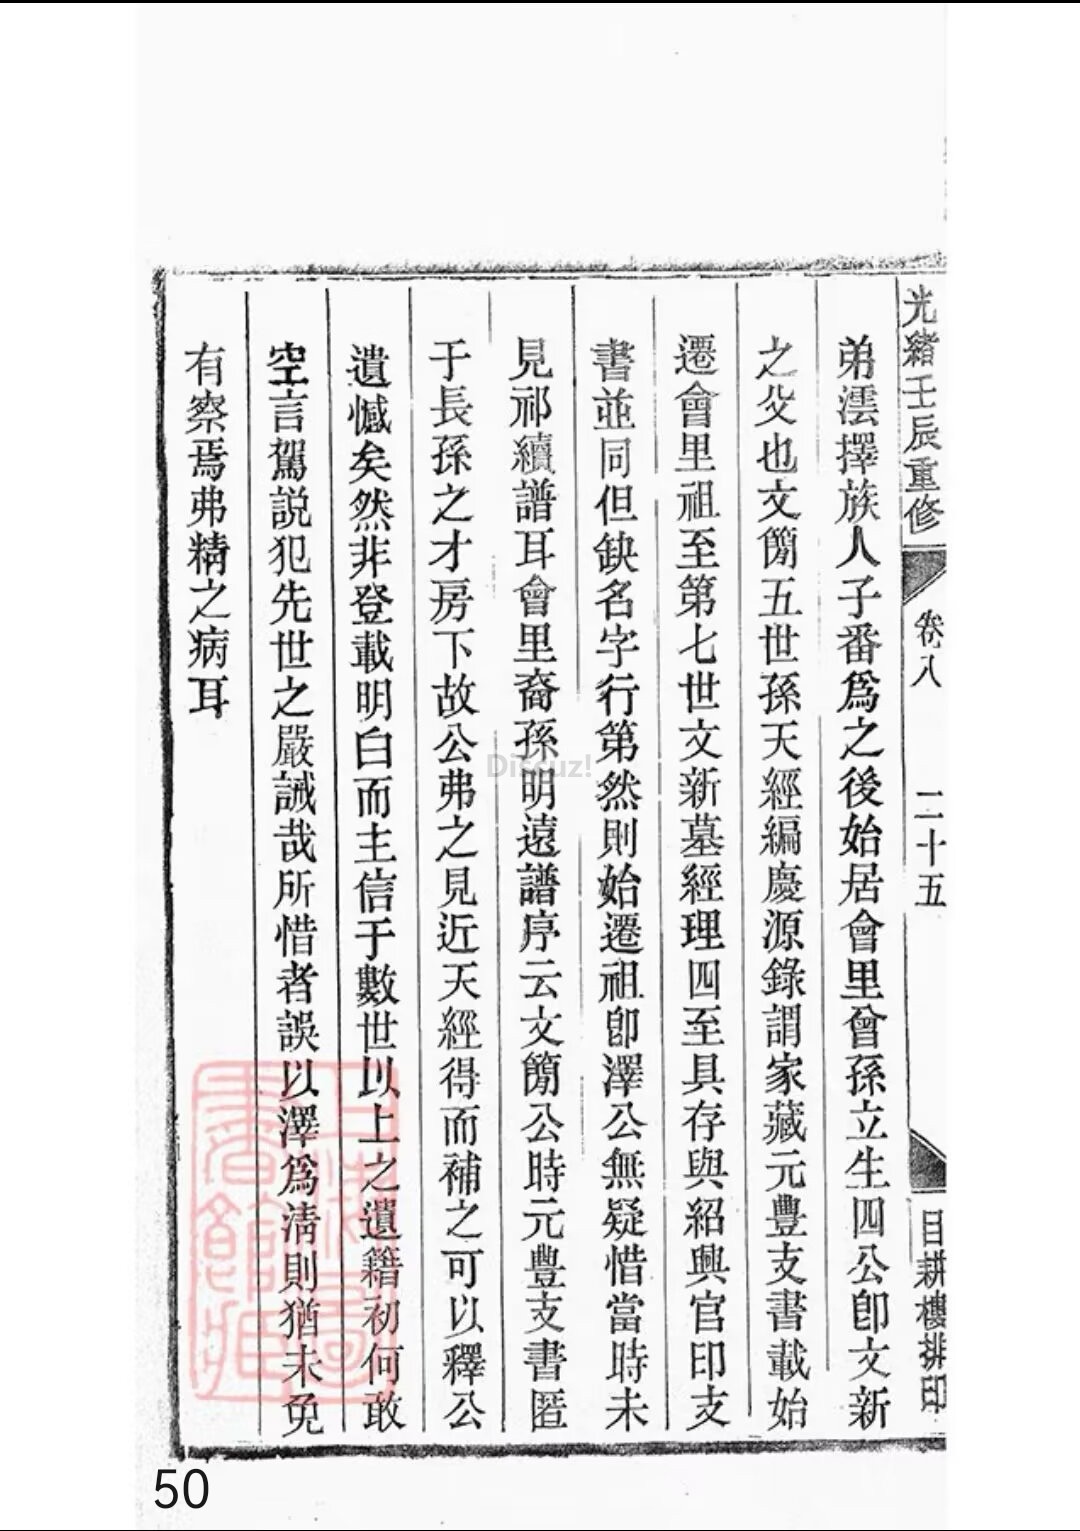 光緒壬辰重修 卷八 二十五 目耕樓排印
弟澐擇族人子番爲之後始居會里曾孫立生四公卽文新
之父也文簡五世孫天經編慶源錄謂家藏元豐支書載始
遷會里祖至第七世文新墓經理四至具存與紹興官印支
書並同但缺名字行第然則始遷祖卽澤公無疑惜當時未
見祁續譜耳會里裔孫明遠譜序云文簡公時元豐支書匿
于長孫之才房下故公弗之見近天經得而補之可以釋公
遺憾矣然非登載明白而主信于數世以上之遺籍初何敢
空言駕說犯先世之嚴誡哉所惜者誤以澤爲淸則猶未免
有察焉弗精之病耳
Discuz!
50